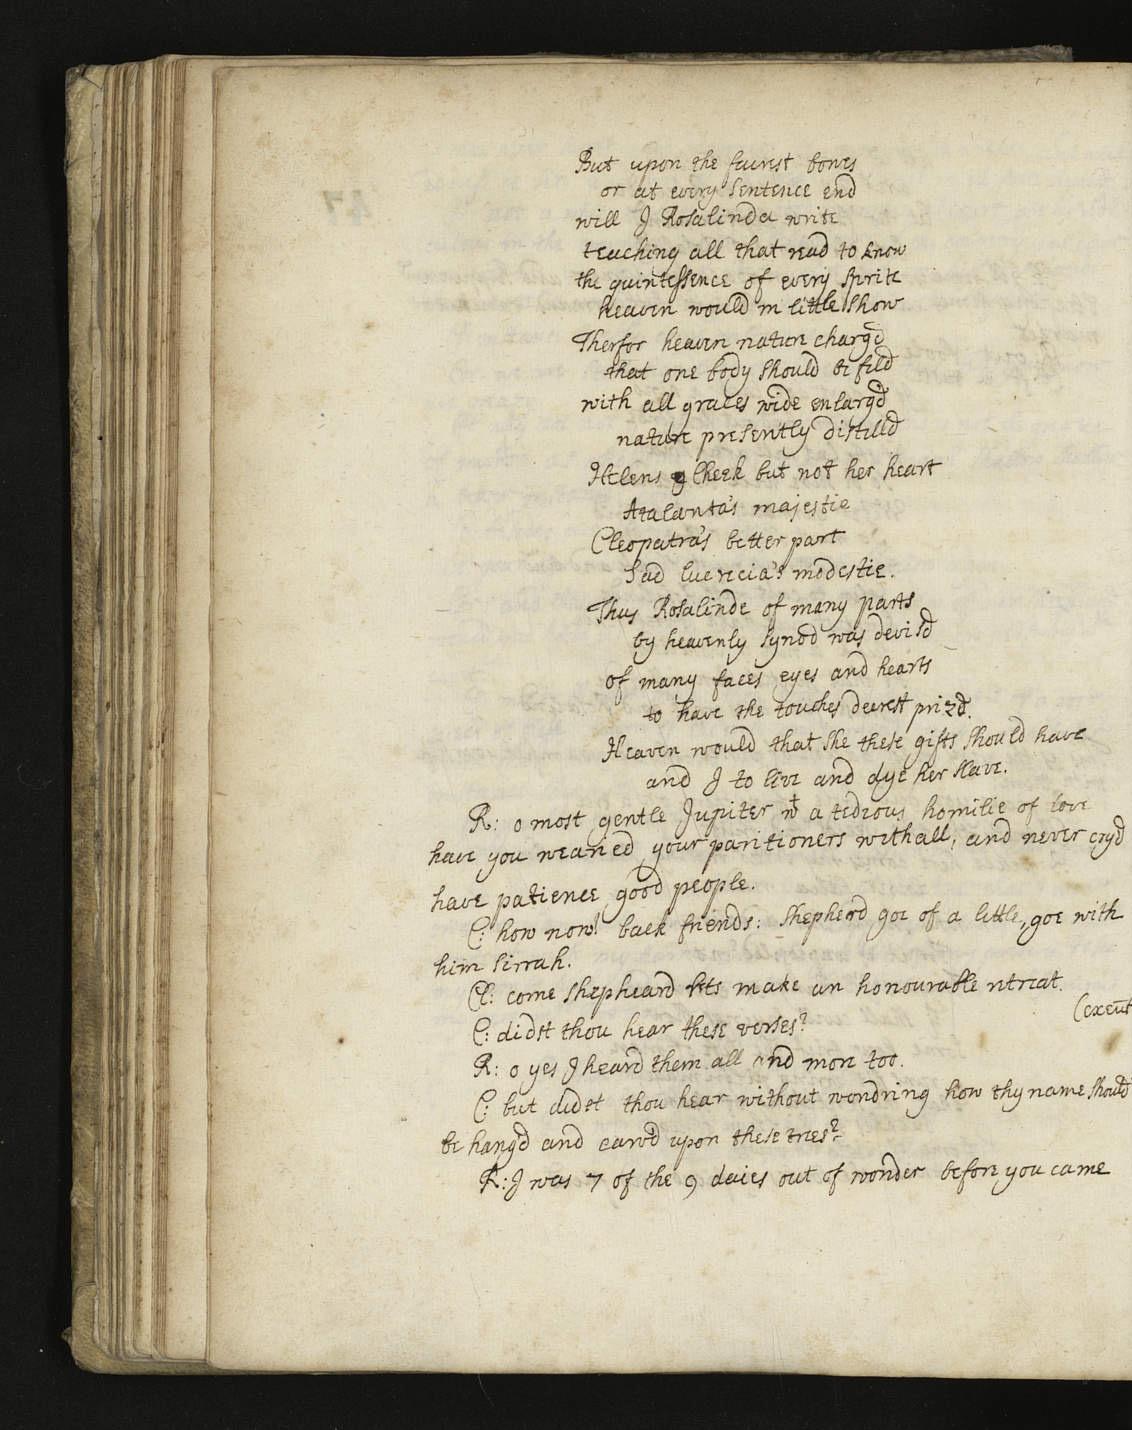 But upon the fairest bowes
or at every sentence end
will J Rosalinda write
teaching all that read to know
the quintessence of every sprite
heaven would in little show
Therfor heaven nature charg'd
that one body should be fild
with all graces wide enlarg'd
nature presently distilld
Helens cheek but not her heart
Atalanta's majestie
Cleopatra's better part
sad lucrecia's modestie.
Thus Rosalinde of many parts
by heavenly synod was devis'd
of many faces eyes and hearts
to have the touches deerest priz'd.
Heaven would that she these gifts should have
and J to live and dye her slave.
R: o most gentle Jupiter wt a tedious homilie of love
have you wearied your paritioners withall, and never cry'd
have patience good people.
C: how now! back friends: shepherd goe of a little, goe with
him sirrah.
Cl: come shepheard lets make an honourable retreat.
(exeūt
C: didst thou hear these verses?
R: o yes J heard them all and more too.
C: but didst thou hear without wondring how thy name should
be hang'd and carv'd upon these trees?
R: J was 7 of the 9 daies out of wonder before you came